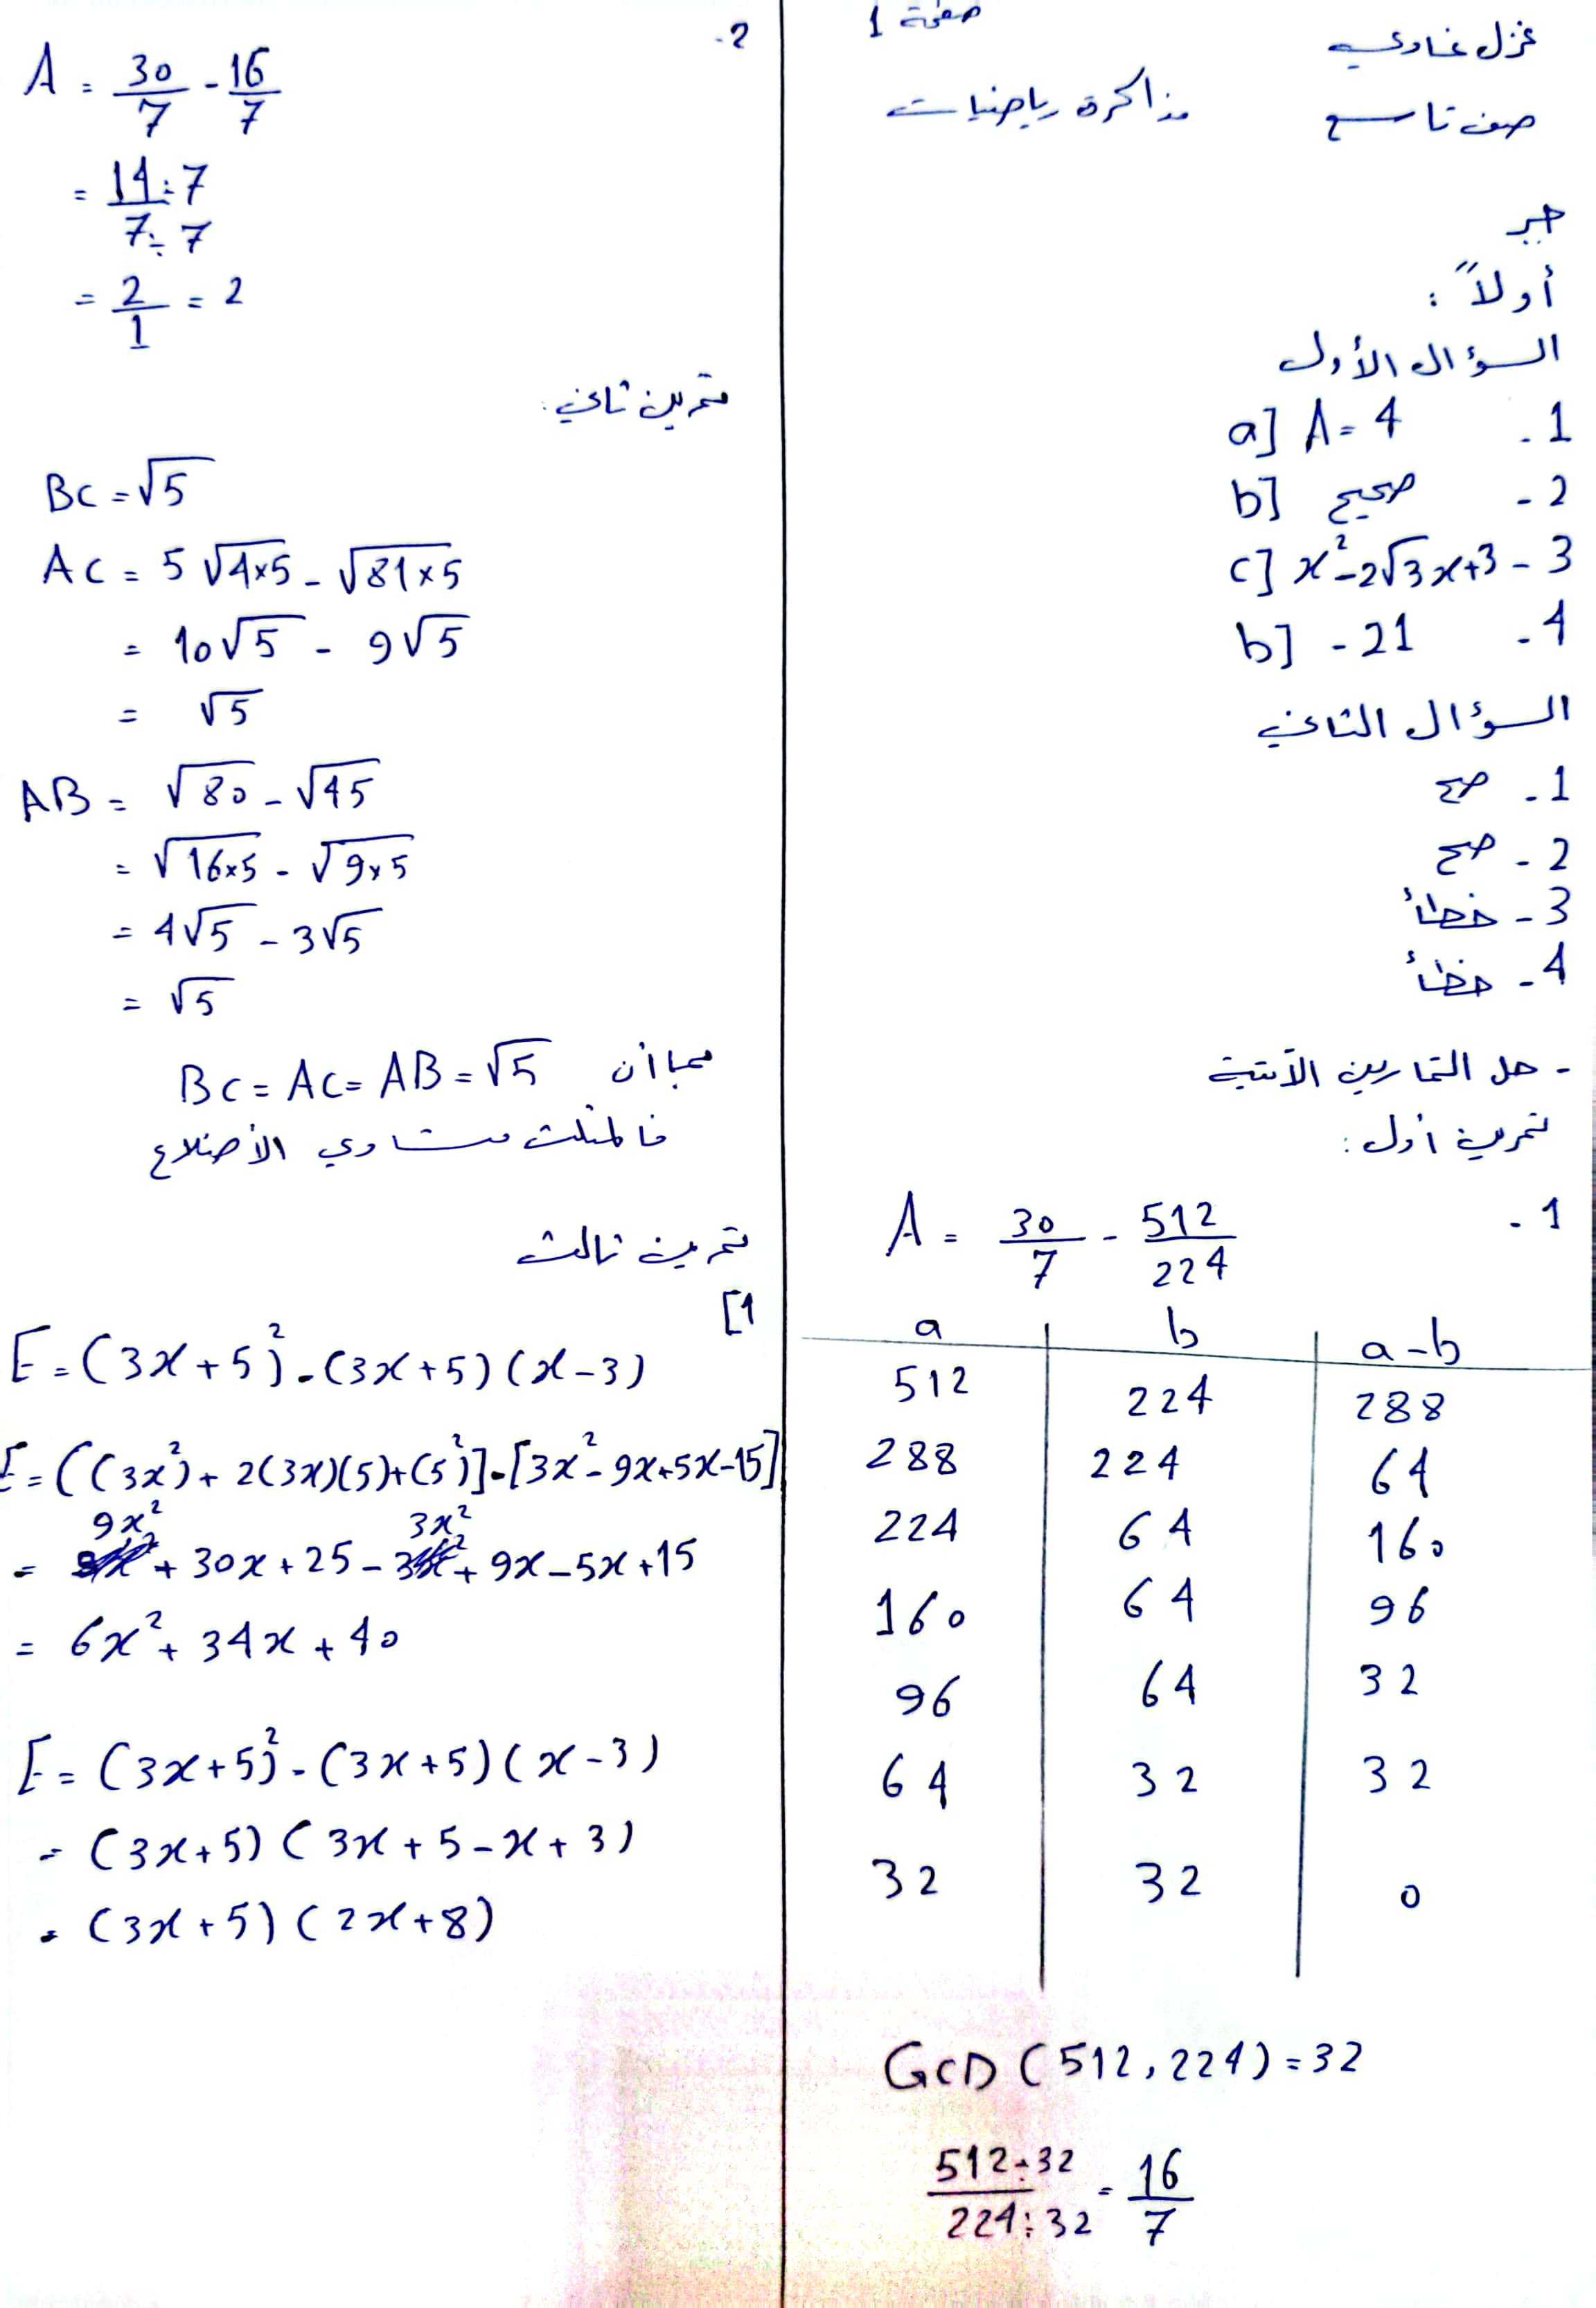 غزل غناوي
صف تاسع
صفحة 1
مذاكرة رياضيات
جبر
أولاً :
السؤال الأول
1 - a] A = 4
2 - b] صحيح
3 - c] x² - 2√3x + 3
4 - b] - 21
السؤال الثاني
1 - صح
2 - صح
3 - خطأ
4 - خطأ
- حل التمارين الآتية
تمرين أول :
1 - A = 30/7 - 512/224
a | b | a - b
512 | 224 | 288
288 | 224 | 64
224 | 64 | 160
160 | 64 | 96
96 | 64 | 32
64 | 32 | 32
32 | 32 | 0
GCD (512, 224) = 32
512÷32/224÷32 = 16/7
2 -
A = 30/7 - 16/7
= 14÷7/7÷7
= 2/1 = 2
تمرين ثاني :
BC = √5
AC = 5√4×5 - √81×5
= 10√5 - 9√5
= √5
AB = √80 - √45
= √16×5 - √9×5
= 4√5 - 3√5
= √5
بما أن BC = AC = AB = √5
فالمثلث متساوي الأضلاع
تمرين ثالث
1]
E = (3x + 5)² - (3x + 5)(x - 3)
E = ((3x²) + 2(3x)(5) + (5²)] - [3x² - 9x + 5x - 15]
= 9x² + 30x + 25 - 3x² + 9x - 5x + 15
= 6x² + 34x + 40
E = (3x + 5)² - (3x + 5)(x - 3)
= (3x + 5)(3x + 5 - x + 3)
= (3x + 5)(2x + 8)